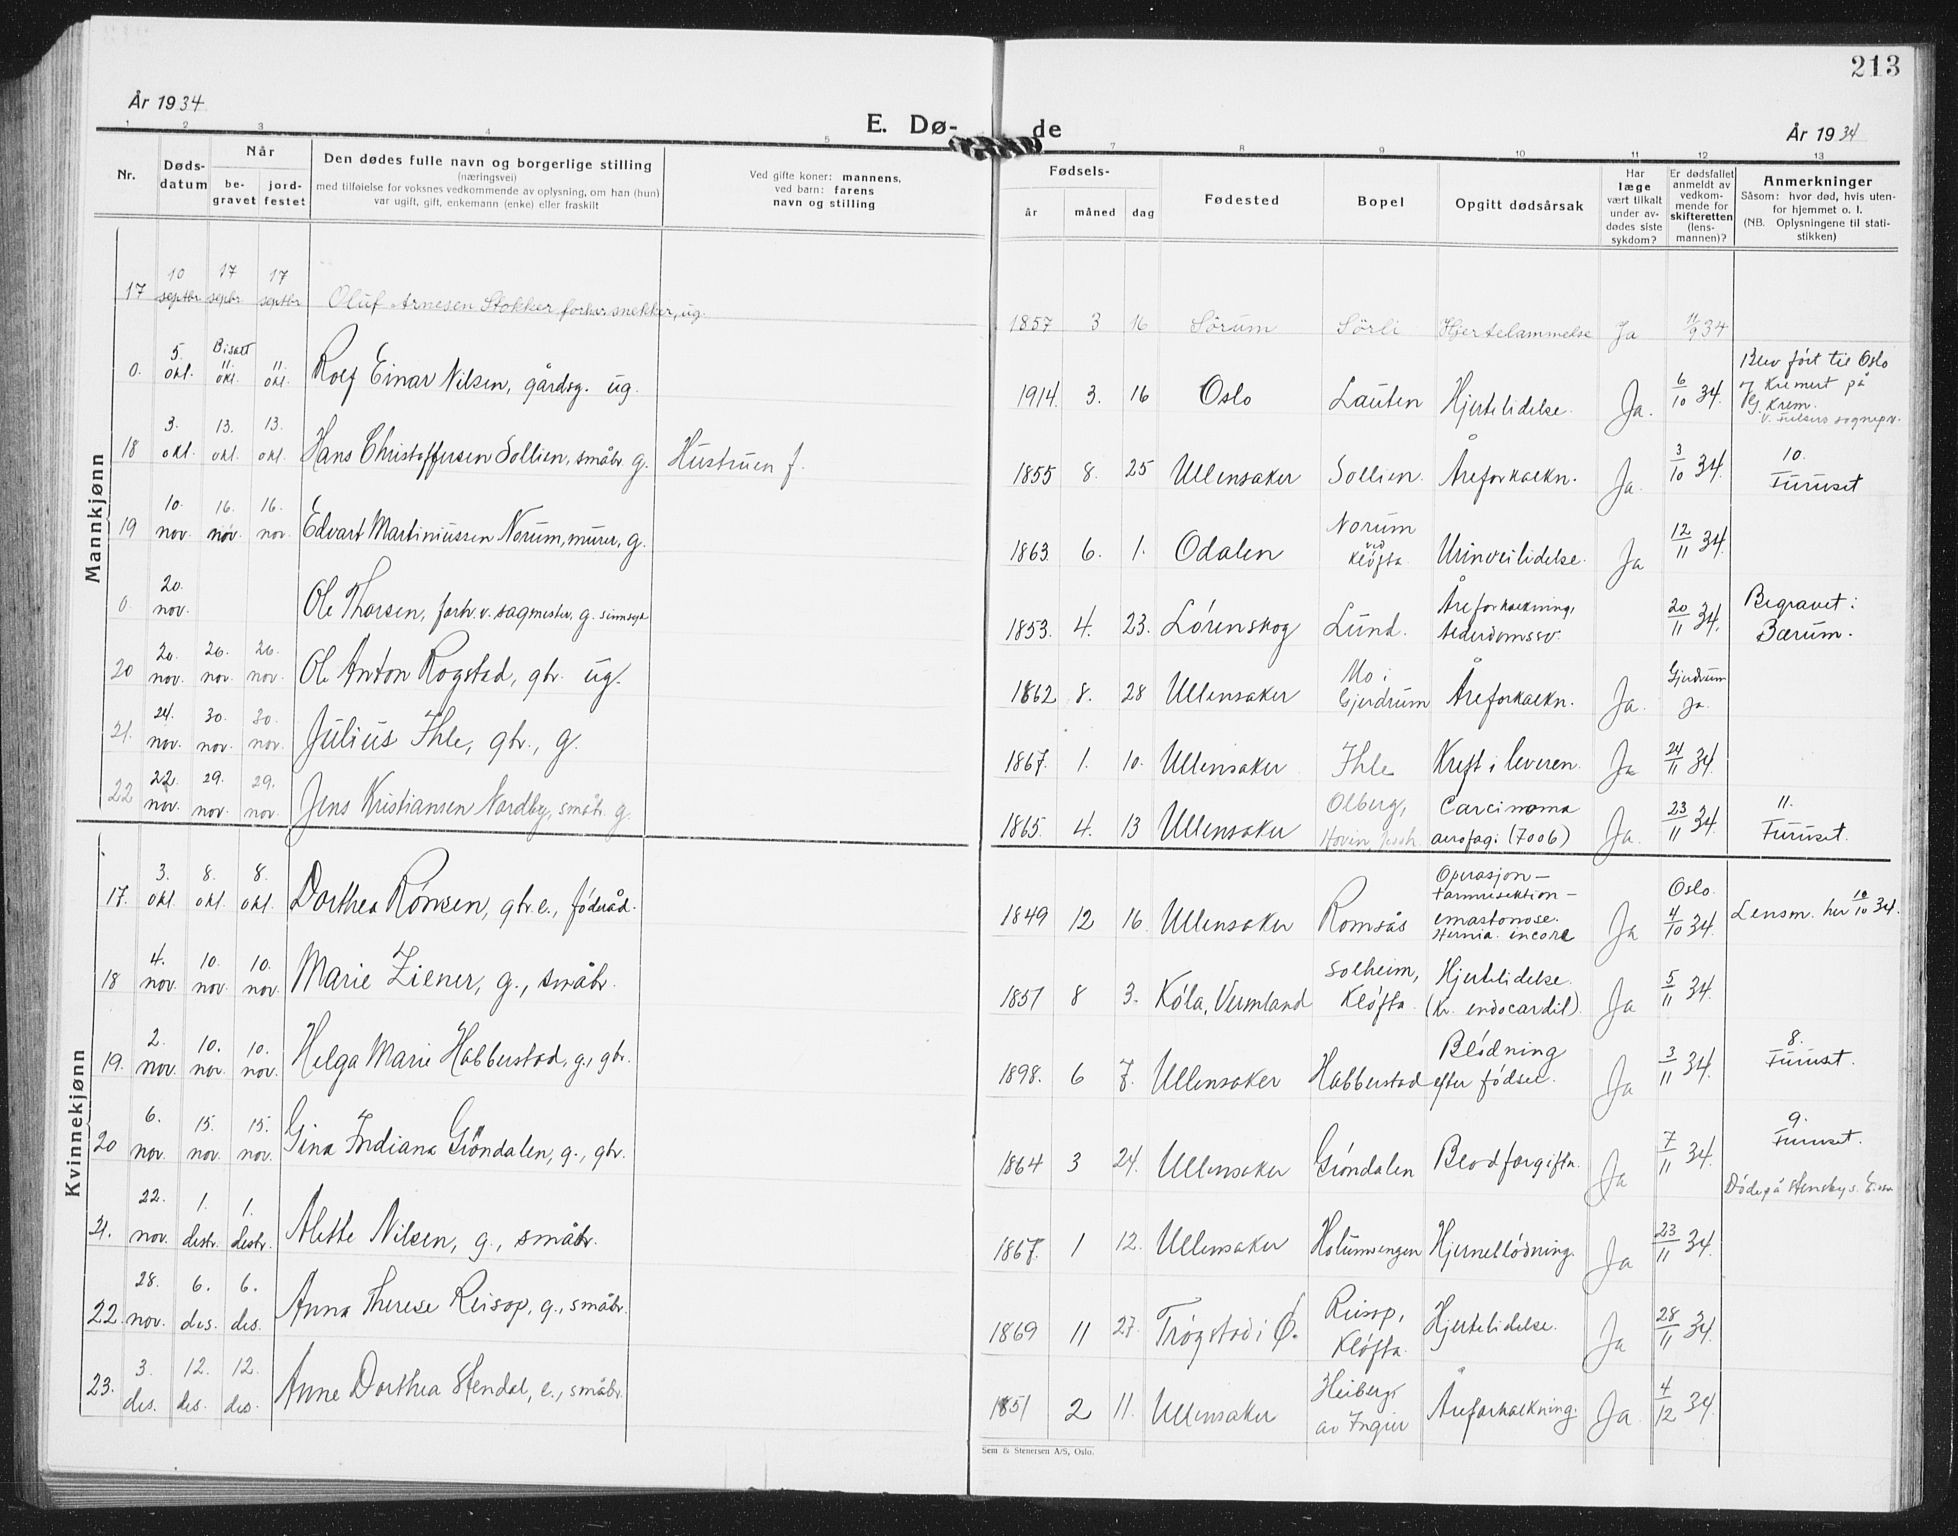 213
År 1934
E. Dø-
de
År 1934
1 2 3 4 5 7 8 9 10 11 12 13
Nr.
Døds-
datum
Når
be-
gravet
jord-
festet
Den dødes fulle navn og borgerlige stilling
(næringsvei)
med tilføielse for voksnes vedkommende av oplysning, om han (hun)
var ugift, gift, enkemann (enke) eller fraskilt
Ved gifte koner: mannens,
ved barn: farens
navn og stilling
Fødsels-
år måned dag
Fødested
Bopel
Opgitt dødsårsak
Har
læge
vært tilkalt
under av-
dødes siste
sykdom?
Er dødsfallet
anmeldt av
vedkom-
mende for
skifteretten
(lens-
mannen)?
Anmerkninger
Såsom: hvor død, hvis uten-
for hjemmet o. l.
(NB. Oplysningene til stati-
stikken)
Mannkjønn
17 10 septbr 17 septbr 17 septbr Oluf Arnesen Stokker forhv. snekker, ug. 1857 3 16 Sörum Sörli Hjertelammelse Ja 11/9 34
0. 5. okt. Bisatt 11. okt. 11. okt. Rolf Einar Nilsen, gårdsg. ug. 1914. 3. 16 Oslo Lauten Hjertelidelse. Ja. 6/10 34. Blev ført til Oslo
og Kremert på
Vg. Krem.
18 3. okt. 13. okt. 13. okt. Hans Christoffersen Sollien, småbr. g. Hustruen f. 1855 8. 25 Ullensaker Sollien. Åreforkalkn. Ja. 3/10 34. 10.
Furuset
19 10. nov. 16. nov. 16. nov. Edvart Martiniussen Norum, murer, g. 1863. 6. 1. Odalen Norum ved Kløfta Urinveilidelse. Ja 12/11 34.
0. 20. nov. Ole Thorsen, forhv. sagmester, g. sinnsyk 1853. 4. 23. Lørenskog Lund. Åreforkalkning, Alderdomssv. 20/11 34. Begravet i
Bærum.
20 20. nov. 26. nov. 26. nov. Ole Anton Rogstad, gbr. ug. 1862 8. 28 Ullensaker Mo i Gjerdrum Åreforkalkn. Ja. Gjerdrum Ja.
21. 24. nov. 30. nov. 30. nov. Julius Ihle, gbr., g. 1867. 1. 10. Ullensaker Ihle Kreft i leveren. Ja 24/11 34.
22 22. nov. 29. nov. 29. nov. Jens Kristiansen Nordby, småbr. g. 1865. 4. 13 Ullensaker Olberg, Hoven, Carcinoma (7006) Ja. 23/11 34. 11.
Furuset.
Kvinnekjønn
17. 3. okt. 8. okt. 8. okt. Dorthea Rønsen, gbr.e., føderåd. 1849 12 16. Ullensaker Romsås Operasjon - Tarmresektion - Hernia Ja Oslo. 4/10 34. Lensm. her 10/10 34.
18 4. nov. 10. nov. 10. nov. Marie Ziener, g., småbr. 1851 8 3. Köla, Vermland Solheim, Kløfta. Hjertelidelse. (Kr. endocardit). Ja 5/11 34.
19. 2. nov. 10. nov. 10. nov. Helga Marie Habberstad, g., gbr. 1898. 6 7. Ullensaker Habberstad Blødning efter fødsel. Ja 3/11 34. 8.
Furuset.
20 6. nov. 15. nov. 15. nov. Gina Indiana Gröndalen, g., gbr. 1864 3 24. Ullensaker Gröndalen Blodforgiftn. Ja 7/11 34. 9.
Furuset.
Døde på Stensby s.
21. 22. nov. 1. desbr. 1. desbr. Alette Nilsen, g., småbr. 1867. 1 12. Ullensaker Holumsengen Hjerneblødning. Ja 23/11 34.
22. 28. nov. 6. des. 6. des. Anna Therese Reisop, g., småbr. 1869 11 27. Trøgstad i Ø. Reisop, Kløfta. Hjertelidelse. Ja 28/11 34.
23. 3. des. 12. des. 12. des. Anne Dorthea Stendal, e., småbr. 1851 2 11. Ullensaker Heiberg av Ingier Åreforkalkning. Ja. 4/12 34.
Sem & Stenersen A/S, Oslo.